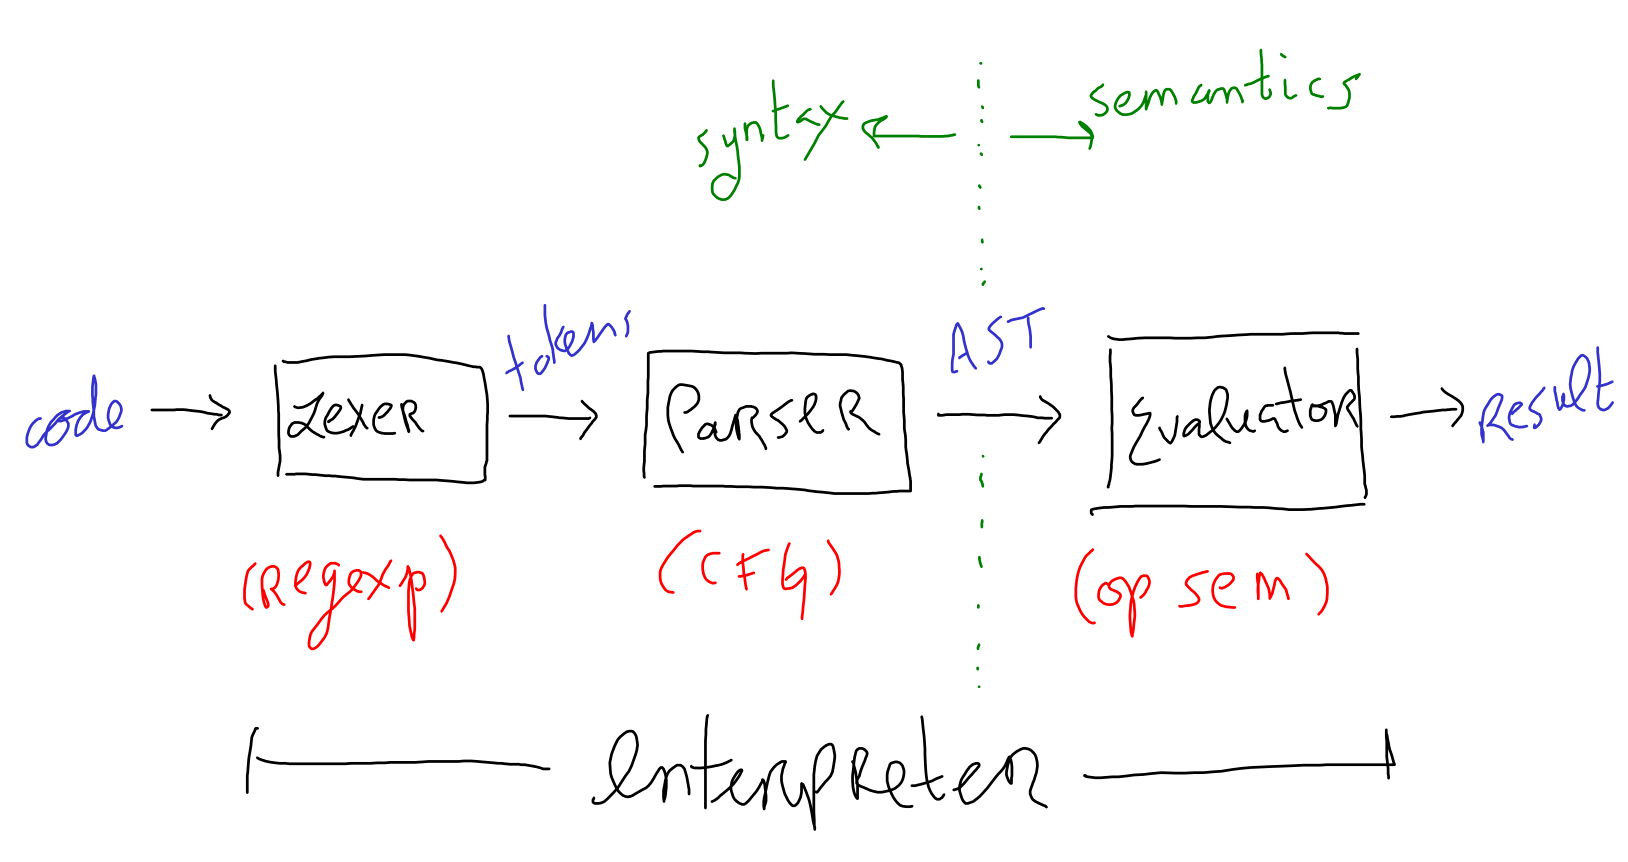 syntax
semantics
code
Lexer
tokens
Parser
AST
Evaluator
Result
(Regexp)
(CFG)
(op sem)
interpreter